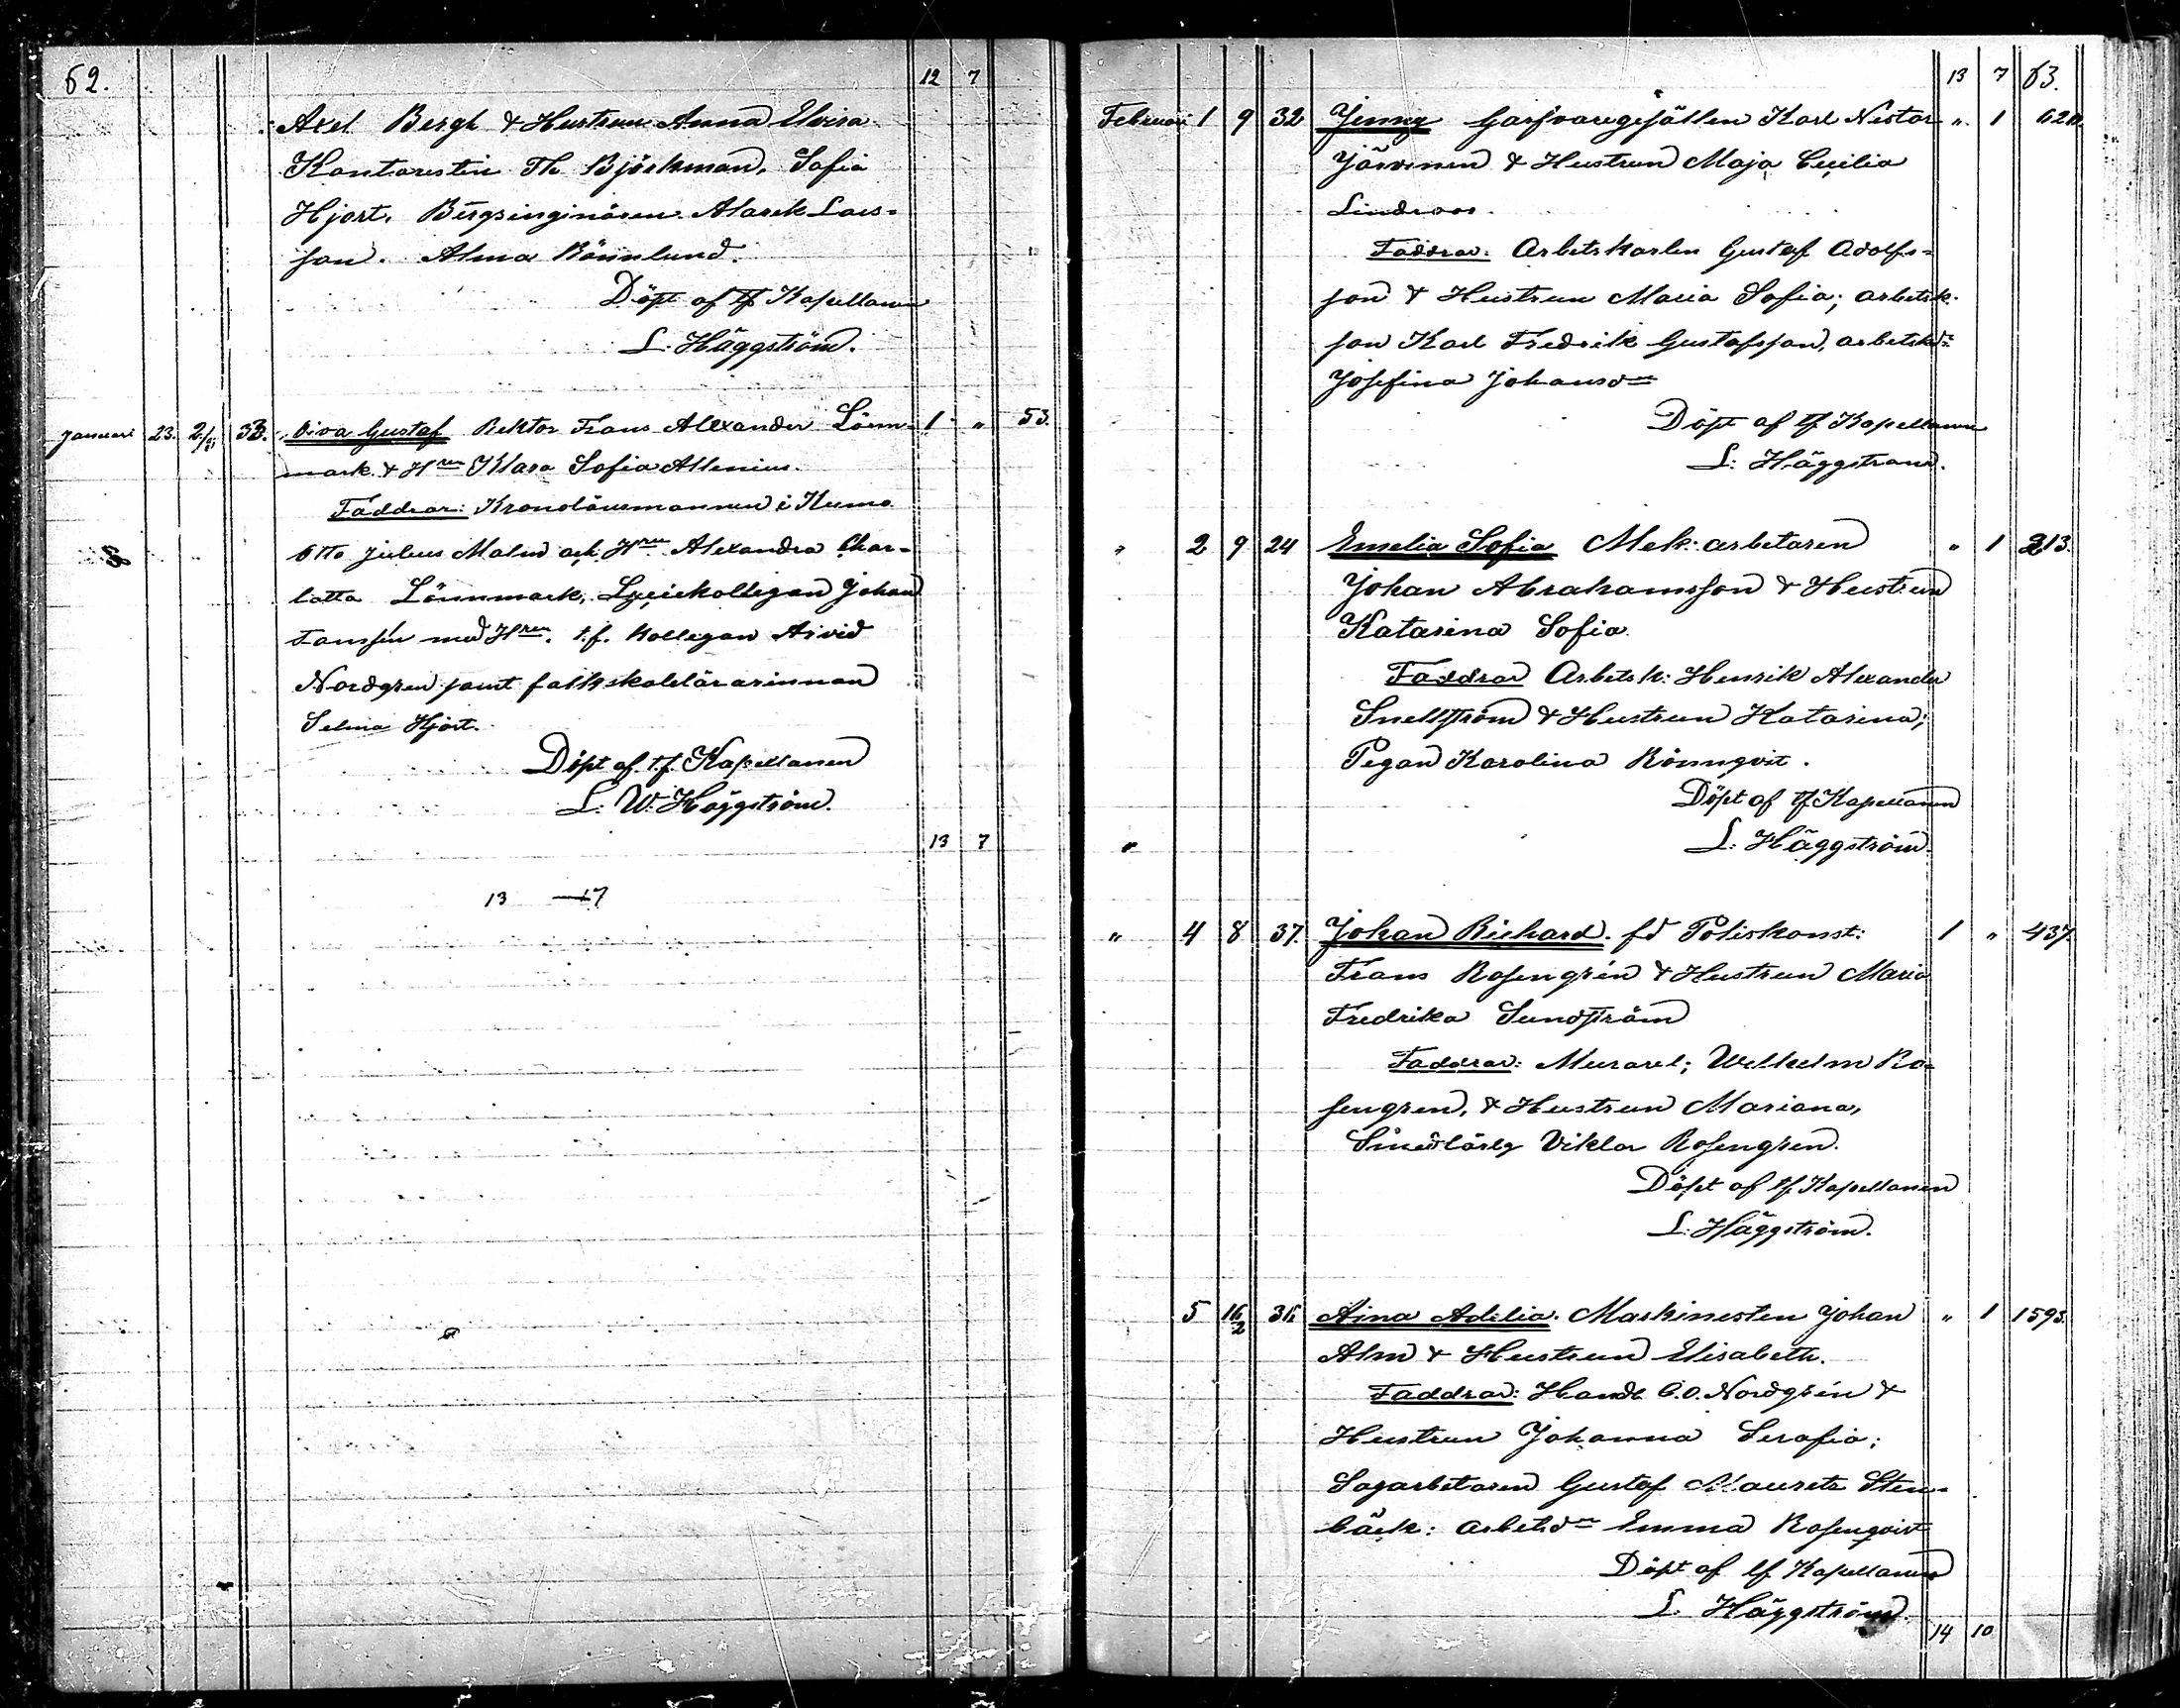 62. 12 7
Axel Bergh & Hustrun Anna Elvira
Kontoristin Th Björkman, Sofia
Hjort, Bergsinginören Alarik Lars-
son. Alma Rönnlund.
Döpt af tf Kapellanen
L. Häggström.
Januari 23. 2/ 33. Gustaf Rektor Frans Alexander Lönn- 1 " 53.
mark & Hrun Klara Sofia Allenius.
Faddrar: Kronolänsmannen i Kumo
Otto Julius Malm och Hru Alexandra Char-
lotta Lönnmark, Lyceikollegan Johan
med Hrun. t.f. Kollegan Arvid
Nordgren samt folkskolelärarinnan
Selma Hjort.
Döpt af t.f. Kapellanen
L. W. Häggström.
13 7
13 — 7
13 7 63.
Februari 1 9 32 Jenny Garfvaregesällen Karl Nestor " 1
Järvinen & Hustrun Maja Cecilia
Lindroos.
Faddrar: Arbetskarlen Gustaf Adolfs-
son & Hustrun Maria Sofia; arbetsk.
son Karl Fredrik Gustafsson, arbetsk.dr
Josefina Johansdr
Döpt af tf Kapellanen
L. Häggström.
" 2 9 24 Emelia Sofia Mek: arbetaren " 1 213.
Johan Abrahamsson & Hustrun
Katarina Sofia
Faddrar Arbetsk: Henrik Alexander
Snellström & Hustrun Katarina;
Pigan Karolina Rönnqvist.
Döpt af tf Kapellanen
L. Häggström
" 4 8 37. Johan Richard. fd Poliskonst: 1 " 437.
Frans Rosengrén & Hustrun Maria
Fredrika Sundström
Faddrar: Murarel; Wilhelm Ro-
sengren, & Hustrun Mariana,
Smedlärlg Viktor Rosengren.
Döpt af tf Kapellanen
L. Häggström.
5 16/2 Aina Adelia. Maskinisten Johan " 1 1593.
Alm & Hustrun Elisabeth.
Faddrar: Handl. C.O. Nordgrén &
Hustrun Johanna Serafia;
Sagarbetaren Gustaf Maurits Sten-
bäck: arbetsdr Emma Rosenqvist
Döpt af tf Kapellanen
L. Häggström.
14 10